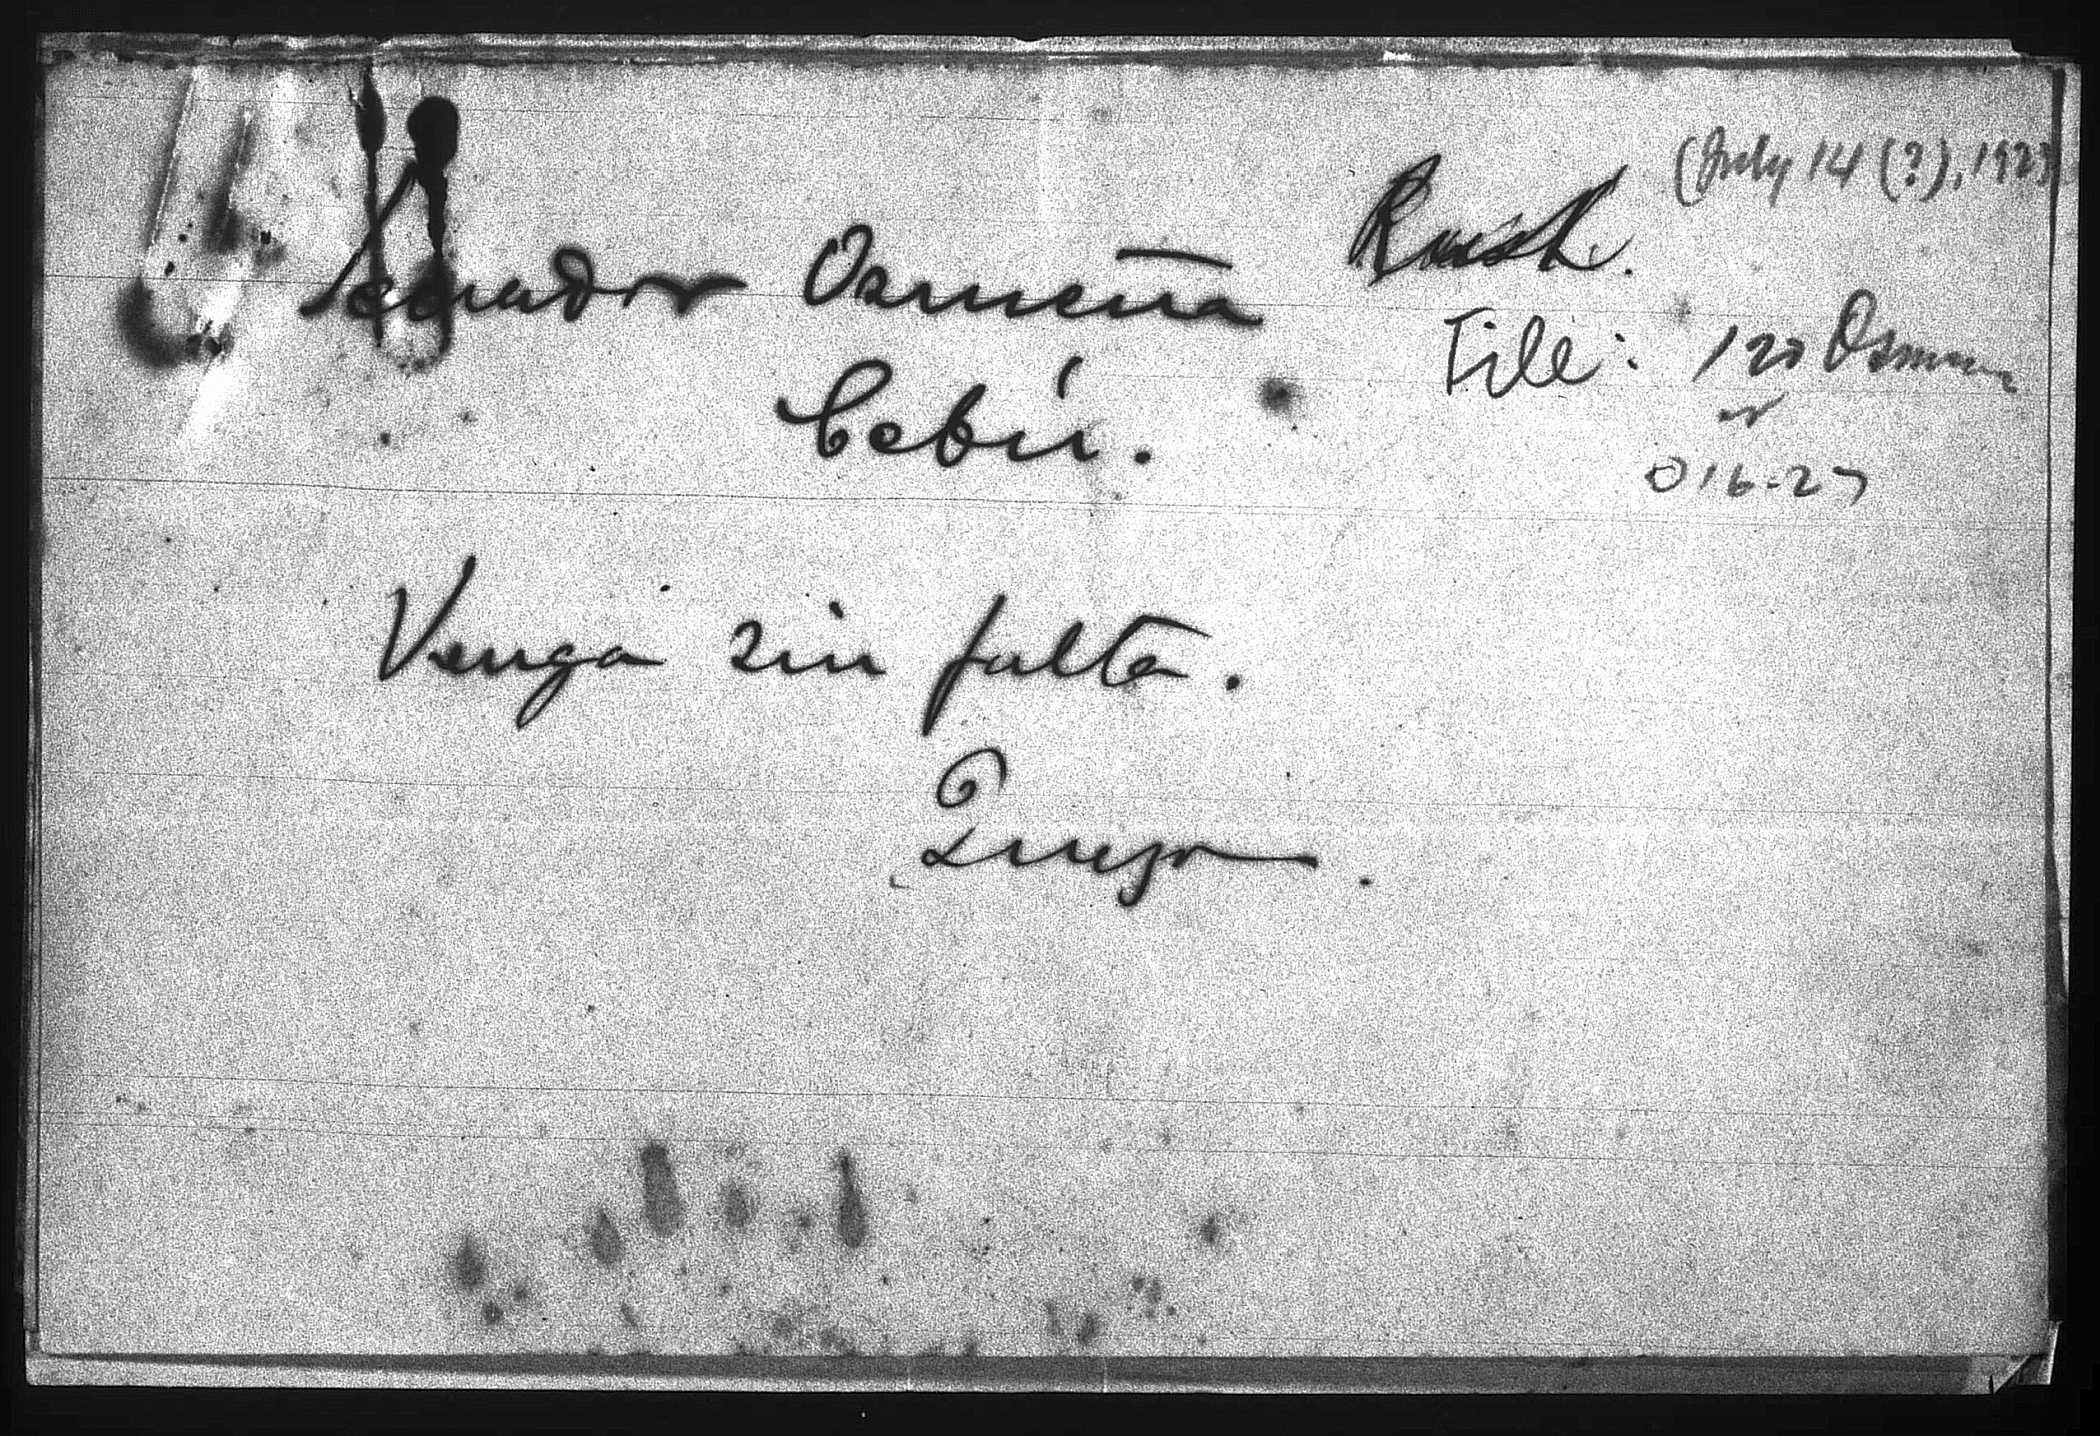 (July 14 (?), 1923
Rush.
Senador Osmeña
File: 120 Osmena
Cebú.
or
016-27
Venga sin falta.
Quezon.